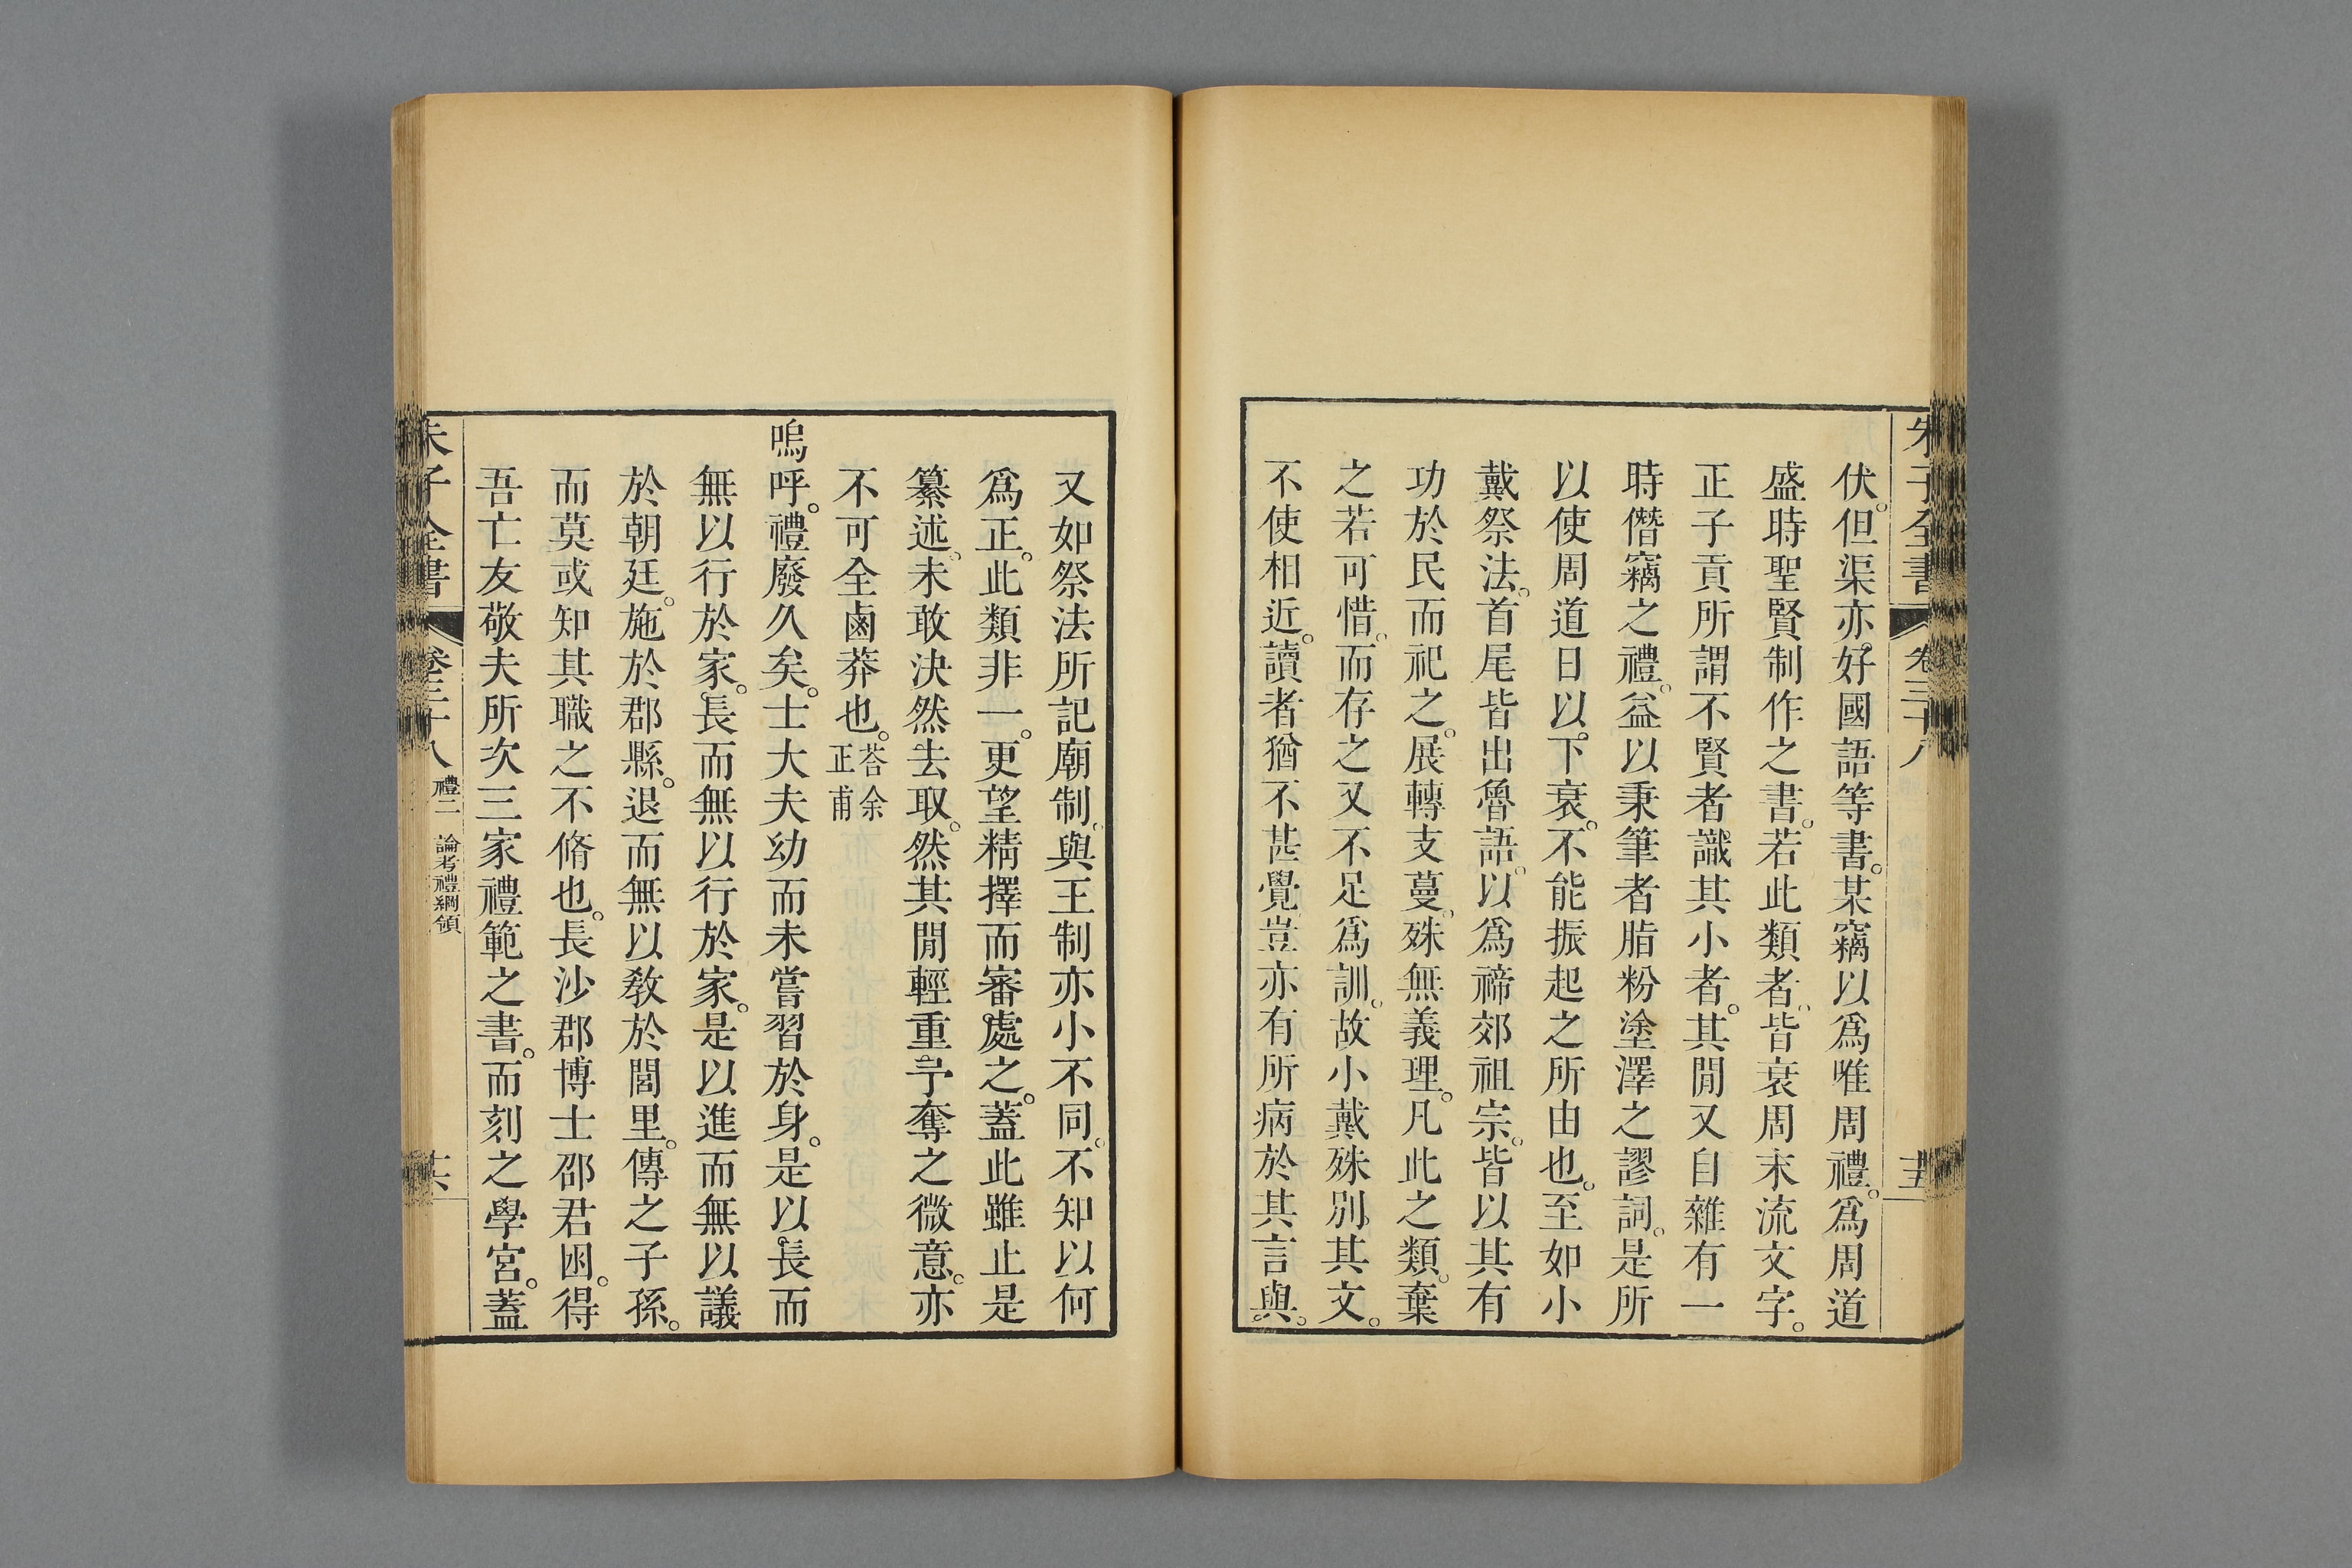 朱子全書 卷三十八 十五
伏。但渠亦好國語等書。某竊以爲唯周禮。爲周道
盛時聖賢制作之書。若此類者。皆衰周末流文字。
正子貢所謂不賢者識其小者。其閒又自雜有一
時僭竊之禮。益以秉筆者脂粉塗澤之謬詞。是所
以使周道日以下衰。不能振起之所由也。至如小
戴祭法。首尾皆出魯語。以爲禘郊祖宗。皆以其有
功於民而祀之。展轉支蔓。殊無義理。凡此之類。棄
之若可惜。而存之又不足爲訓。故小戴殊別其文。
不使相近。讀者猶不甚覺。豈亦有所病於其言與。
又如祭法所記廟制。與王制亦小不同。不知以何
爲正。此類非一。更望精擇而審處之。蓋此雖止是
纂述。未敢決然去取。然其閒輕重予奪之微意。亦
不可全鹵莽也。荅余正甫
嗚呼。禮廢久矣。士大夫幼而未嘗習於身。是以長而
無以行於家。長而無以行於家。是以進而無以議
於朝廷。施於郡縣。退而無以敎於閭里。傳之子孫。
而莫或知其職之不脩也。長沙郡博士邵君囦。得
吾亡友敬夫所次三家禮範之書。而刻之學宮。蓋
朱子全書 卷三十八 禮二 論考禮綱領 十六